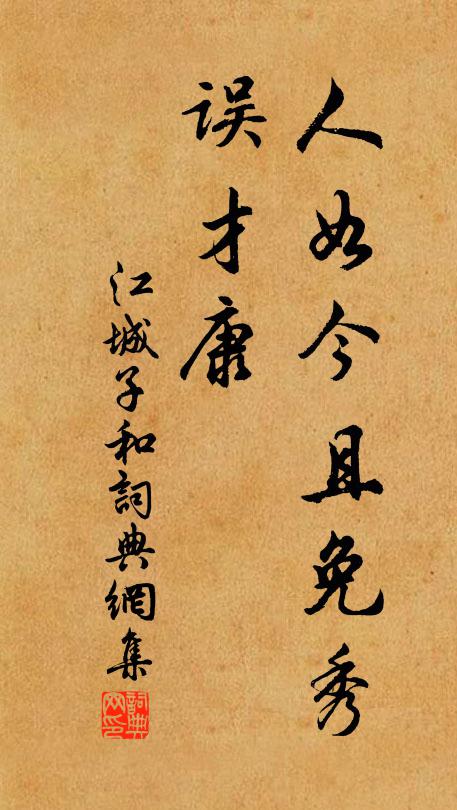 人如今且免秀
误才康
江城子和詞典網集
詞典
网印